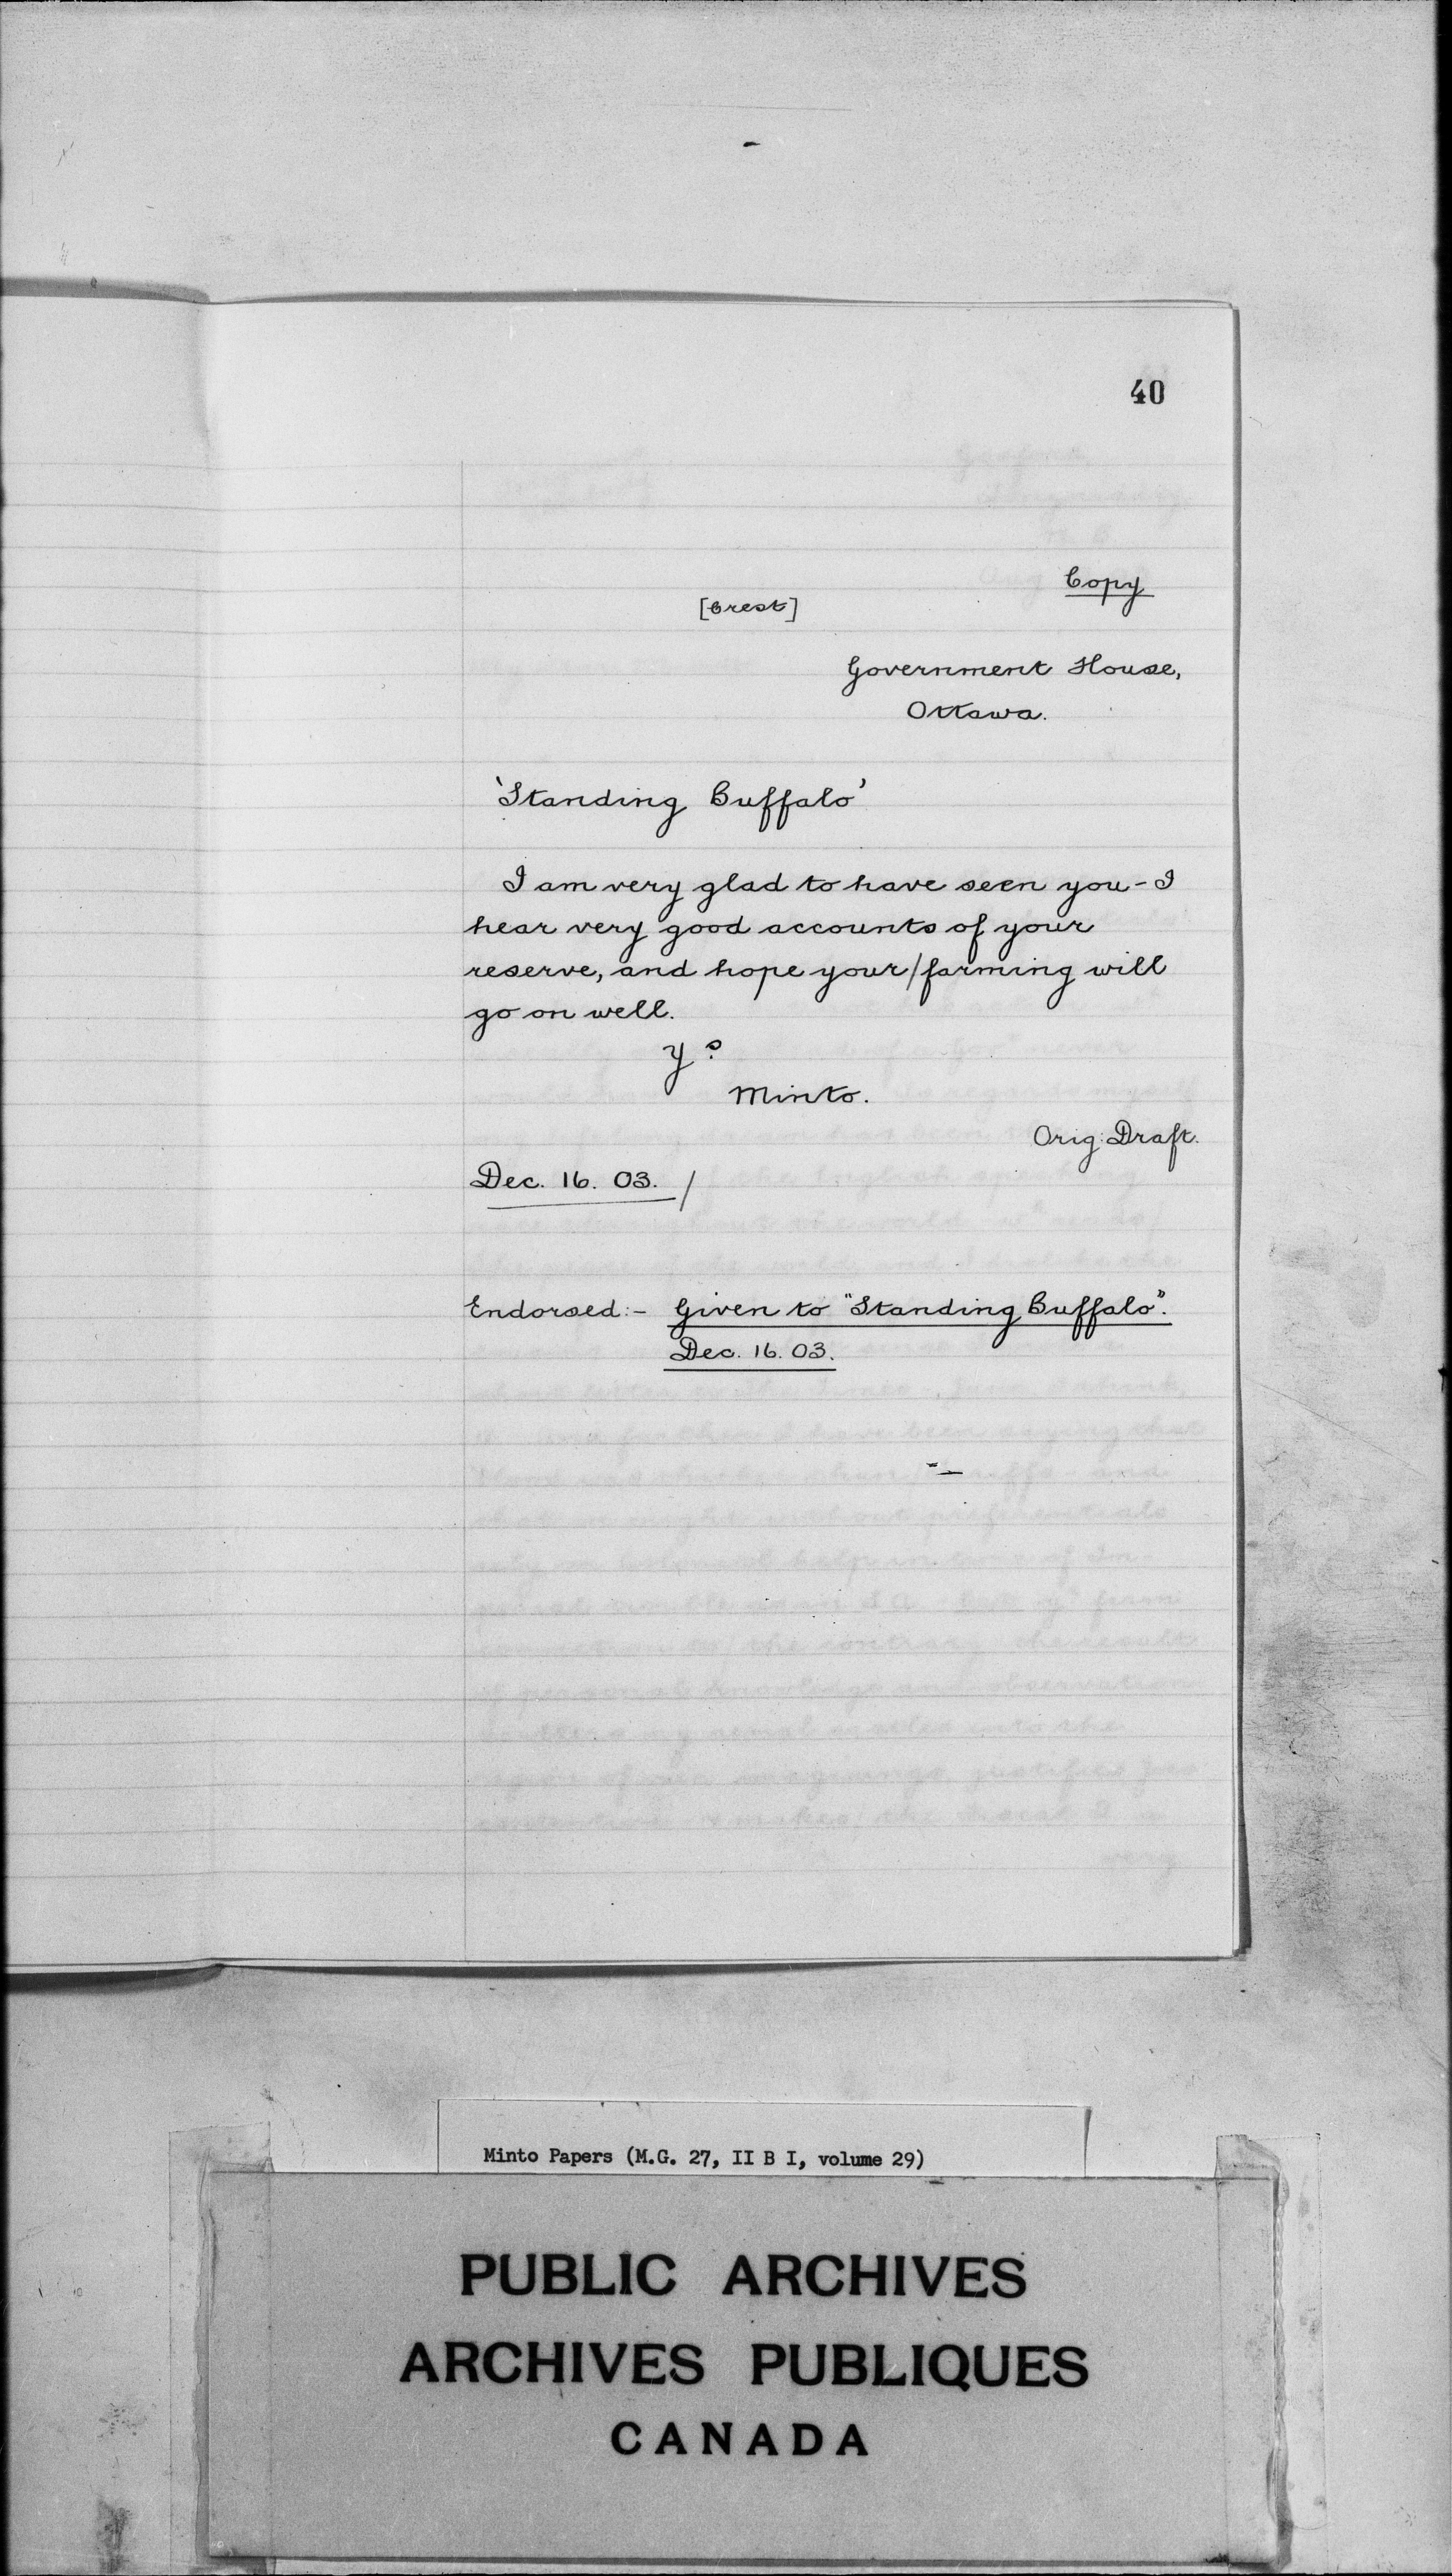 40
Copy
[Crest]
Government House,
Ottawa.
'Standing Buffalo'
I am very glad to have seen you - I
hear very good accounts of your
reserve, and hope your/farming will
go on well.
Yˢ.
Minto.
Orig: Draft.
Dec. 16. 03. /
Endorsed:- Given to "Standing Buffalo".
Dec. 16. 03.
Minto Papers (M.G. 27, II B I, volume 29)
PUBLIC ARCHIVES
ARCHIVES PUBLIQUES
CANADA